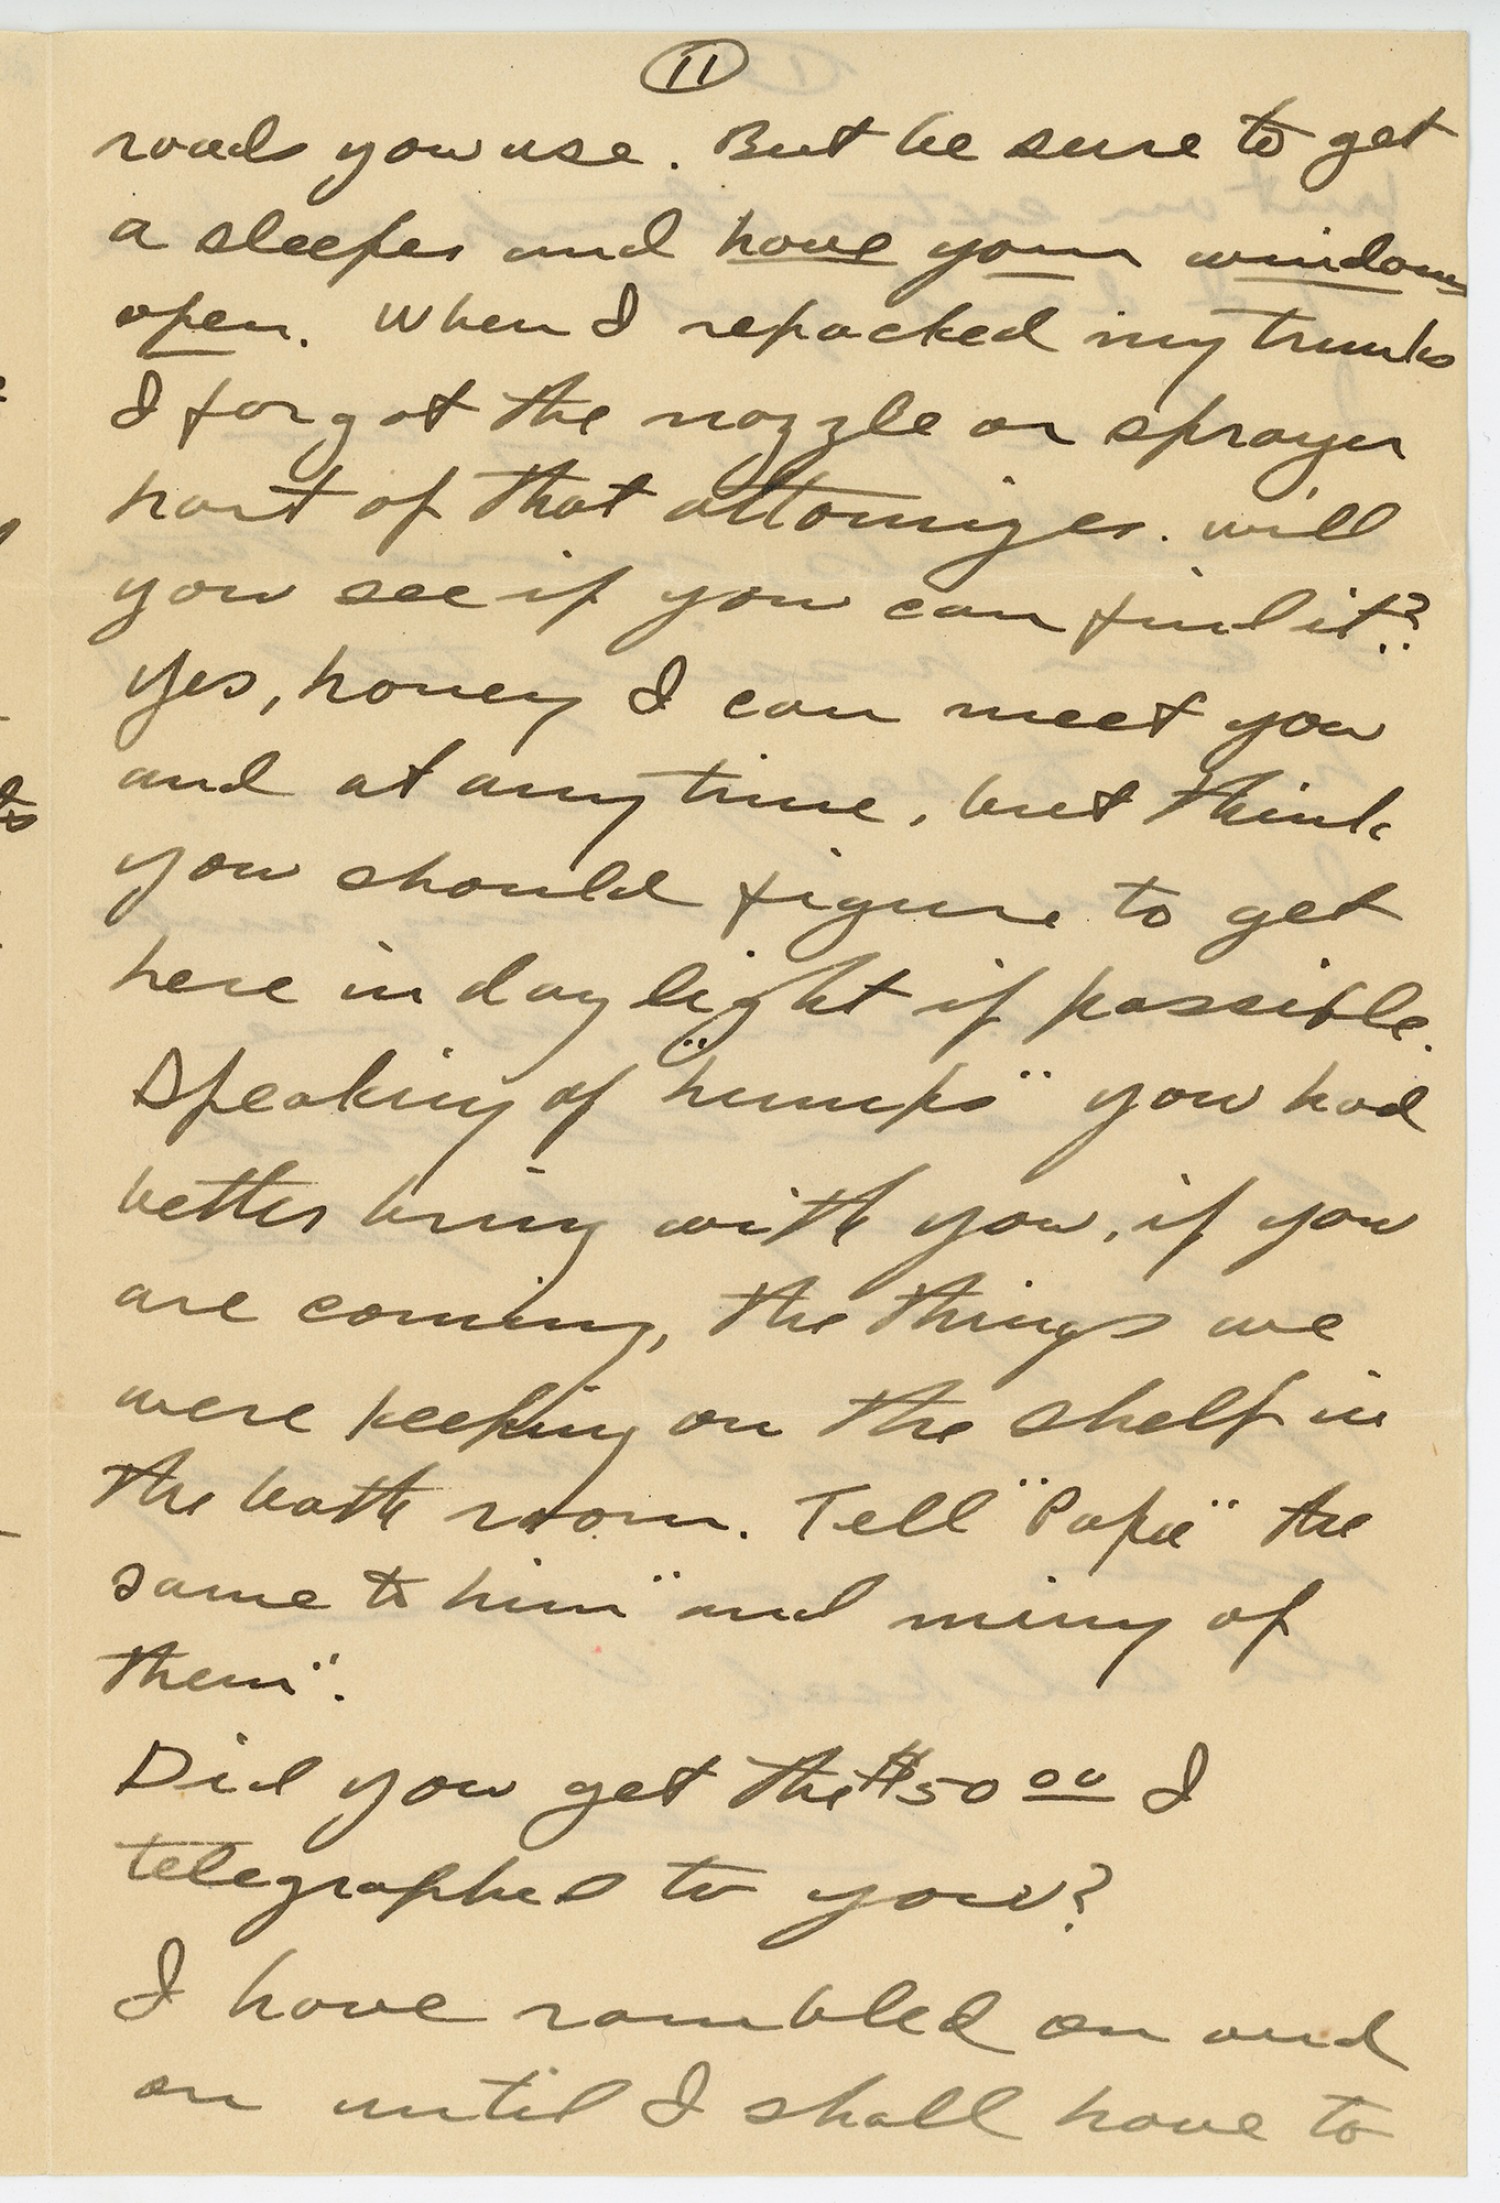 11
roads you use. But be sure to get
a sleeper and have your windows
open. When I repacked my trunks
I forgot the nozzle or sprayer
part of that attomizer. Will
you see if you can find it?
Yes, honey I can meet you
and at any time, but think
you should figure to get
here in daylight if possible.
Speaking of "humps" you had
better bring with you, if you
are coming, the things we
were keeping on the shelf in
the bath room. Tell "Papa" the
same to him "and miny of
them".
Did you get the $50 00 I
telegraphed to you?
I have rambled on and
on until I shall have to